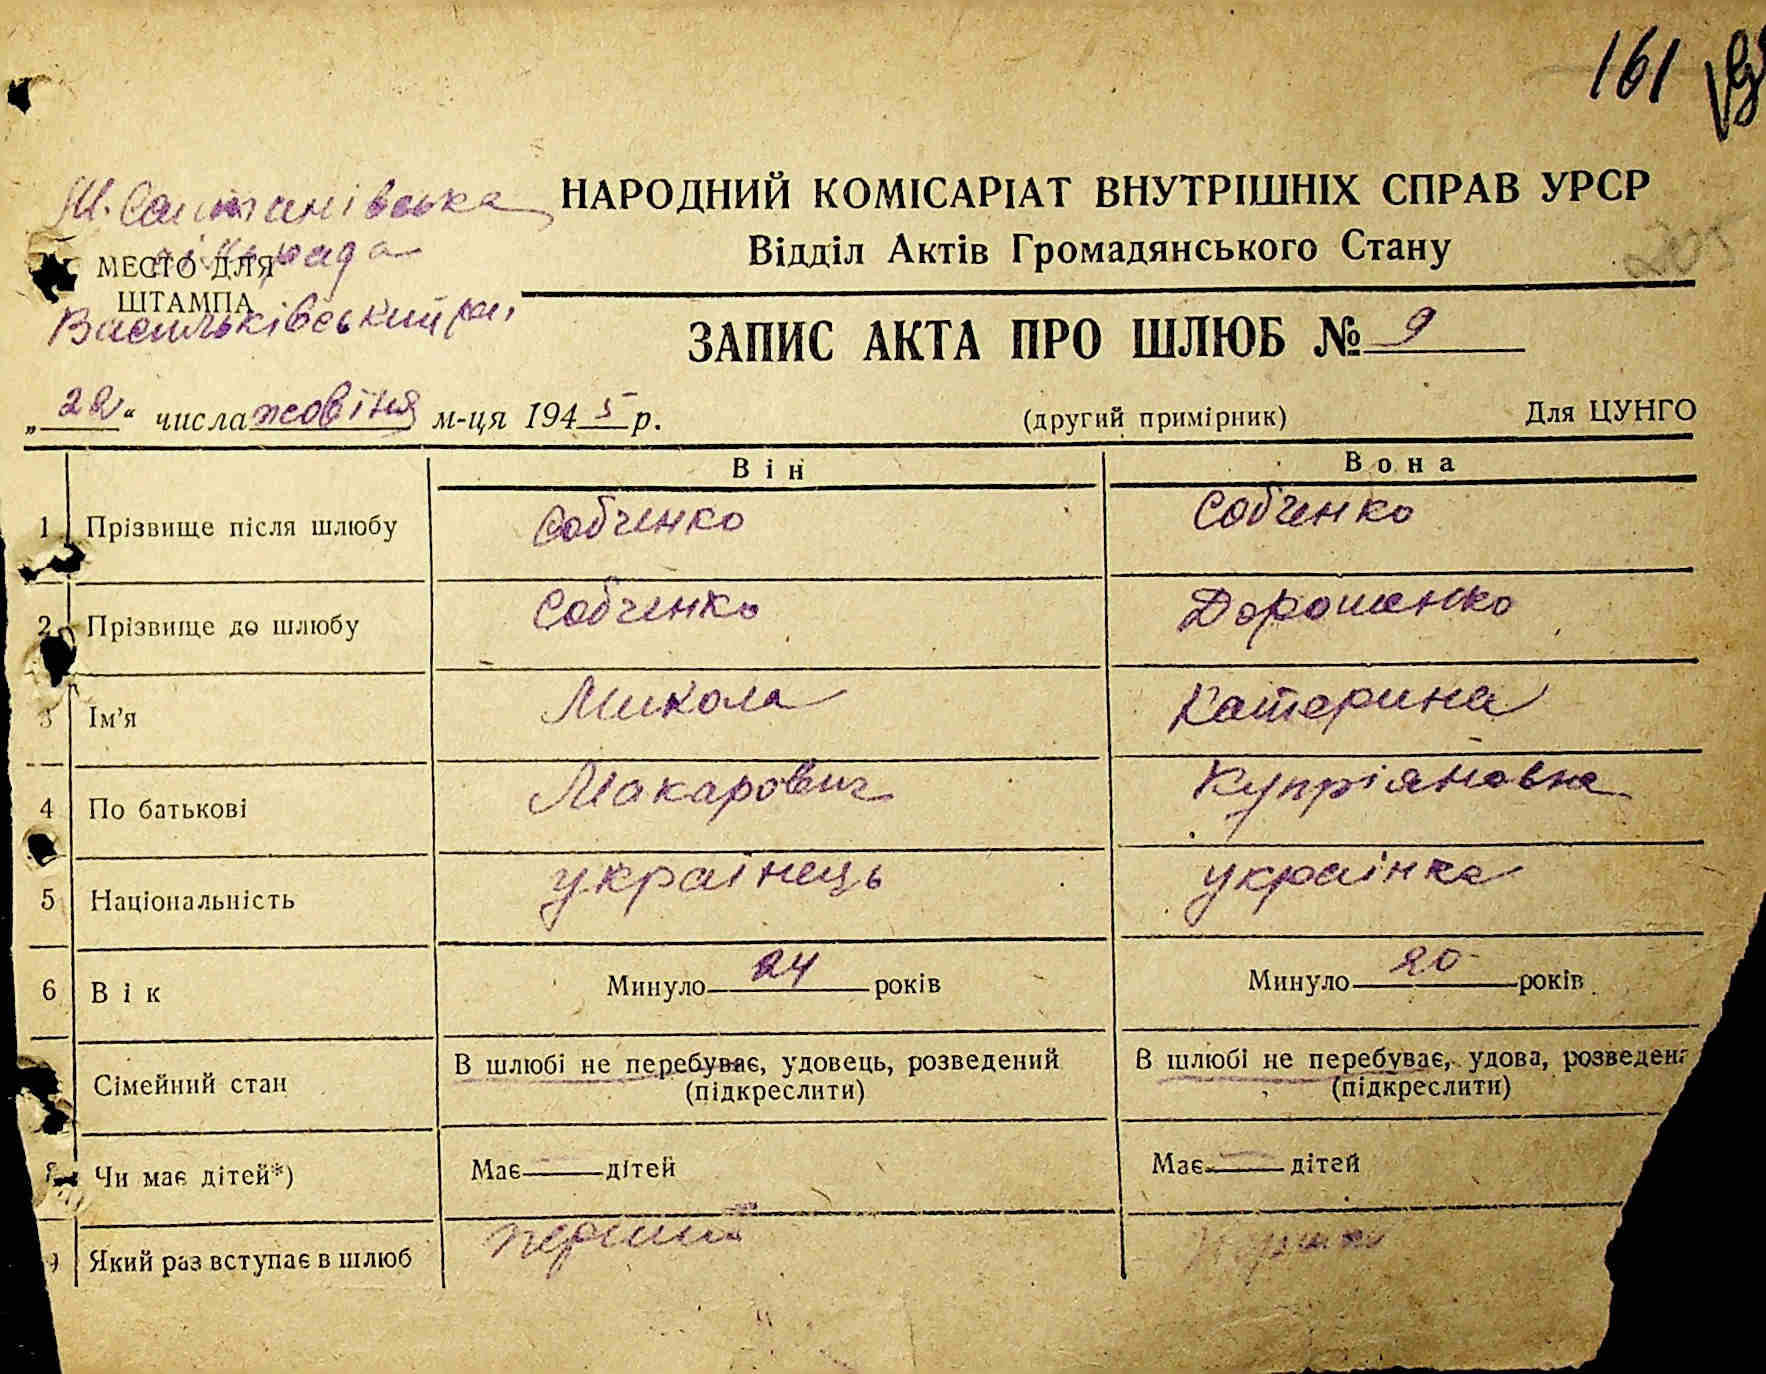 161
НАРОДНИЙ КОМІСАРІАТ ВНУТРІШНІХ СПРАВ УРСР
Відділ Актів Громадянського Стану
205
рада
МЕСТО ДЛЯ
ШТАМПА
Васильківський рай.
ЗАПИС АКТА ПРО ШЛЮБ № 9
„22“ числа жовтня м-ця 1945 р.
(другий примірник)
Для ЦУНГО
Він
Вона
1 Прізвище після шлюбу Собченко Собченко
2 Прізвище до шлюбу Собченко Дорошенко
3 Ім’я Микола Катерина
4 По батькові Макарович Купріяновна
5 Національність українець українка
6 Вік Минуло 24 років Минуло 20 років
Сімейний стан В шлюбі не перебуває, удовець, розведений В шлюбі не перебуває, удова, розведена
(підкреслити) (підкреслити)
8 Чи має дітей*) Має — дітей Має — дітей
9 Який раз вступає в шлюб перший